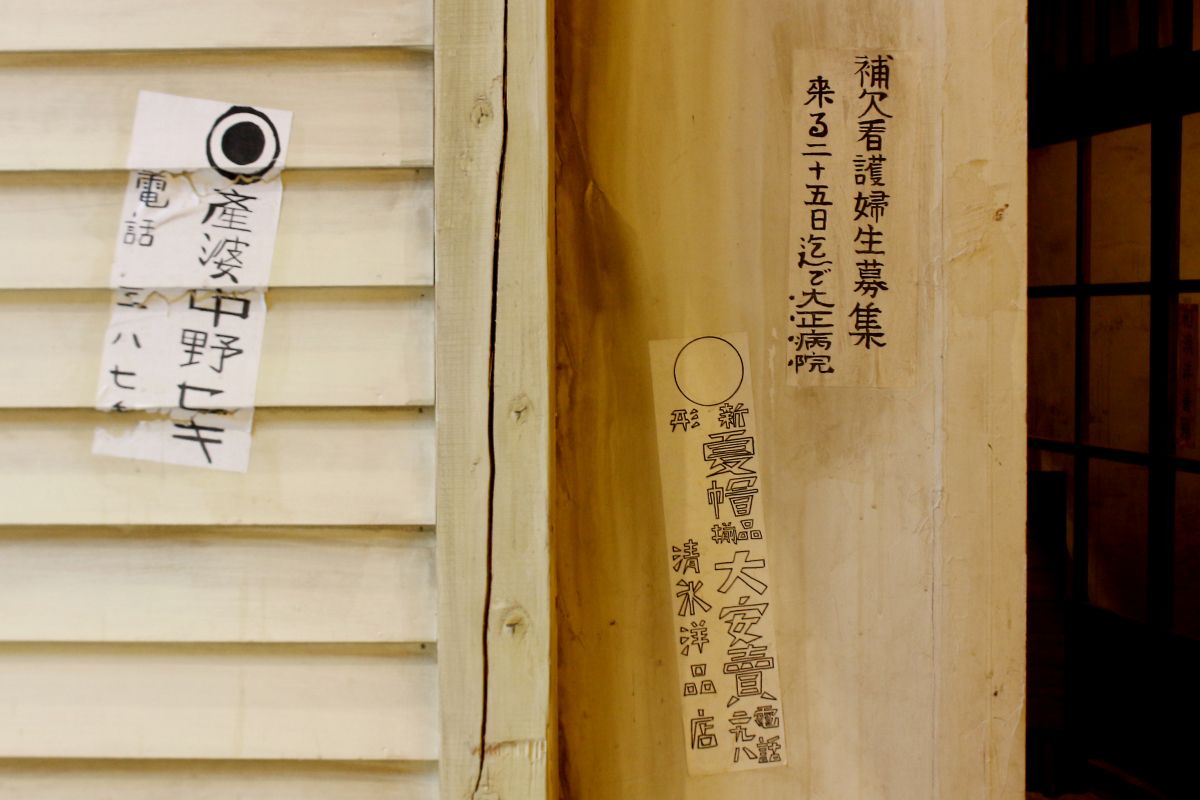 補欠看護婦生募集
来る二十五日迄で大正病院
新形夏帽品揃大安賣電話二九八
清氷洋品店
產婆中野セキ
電話 三八七